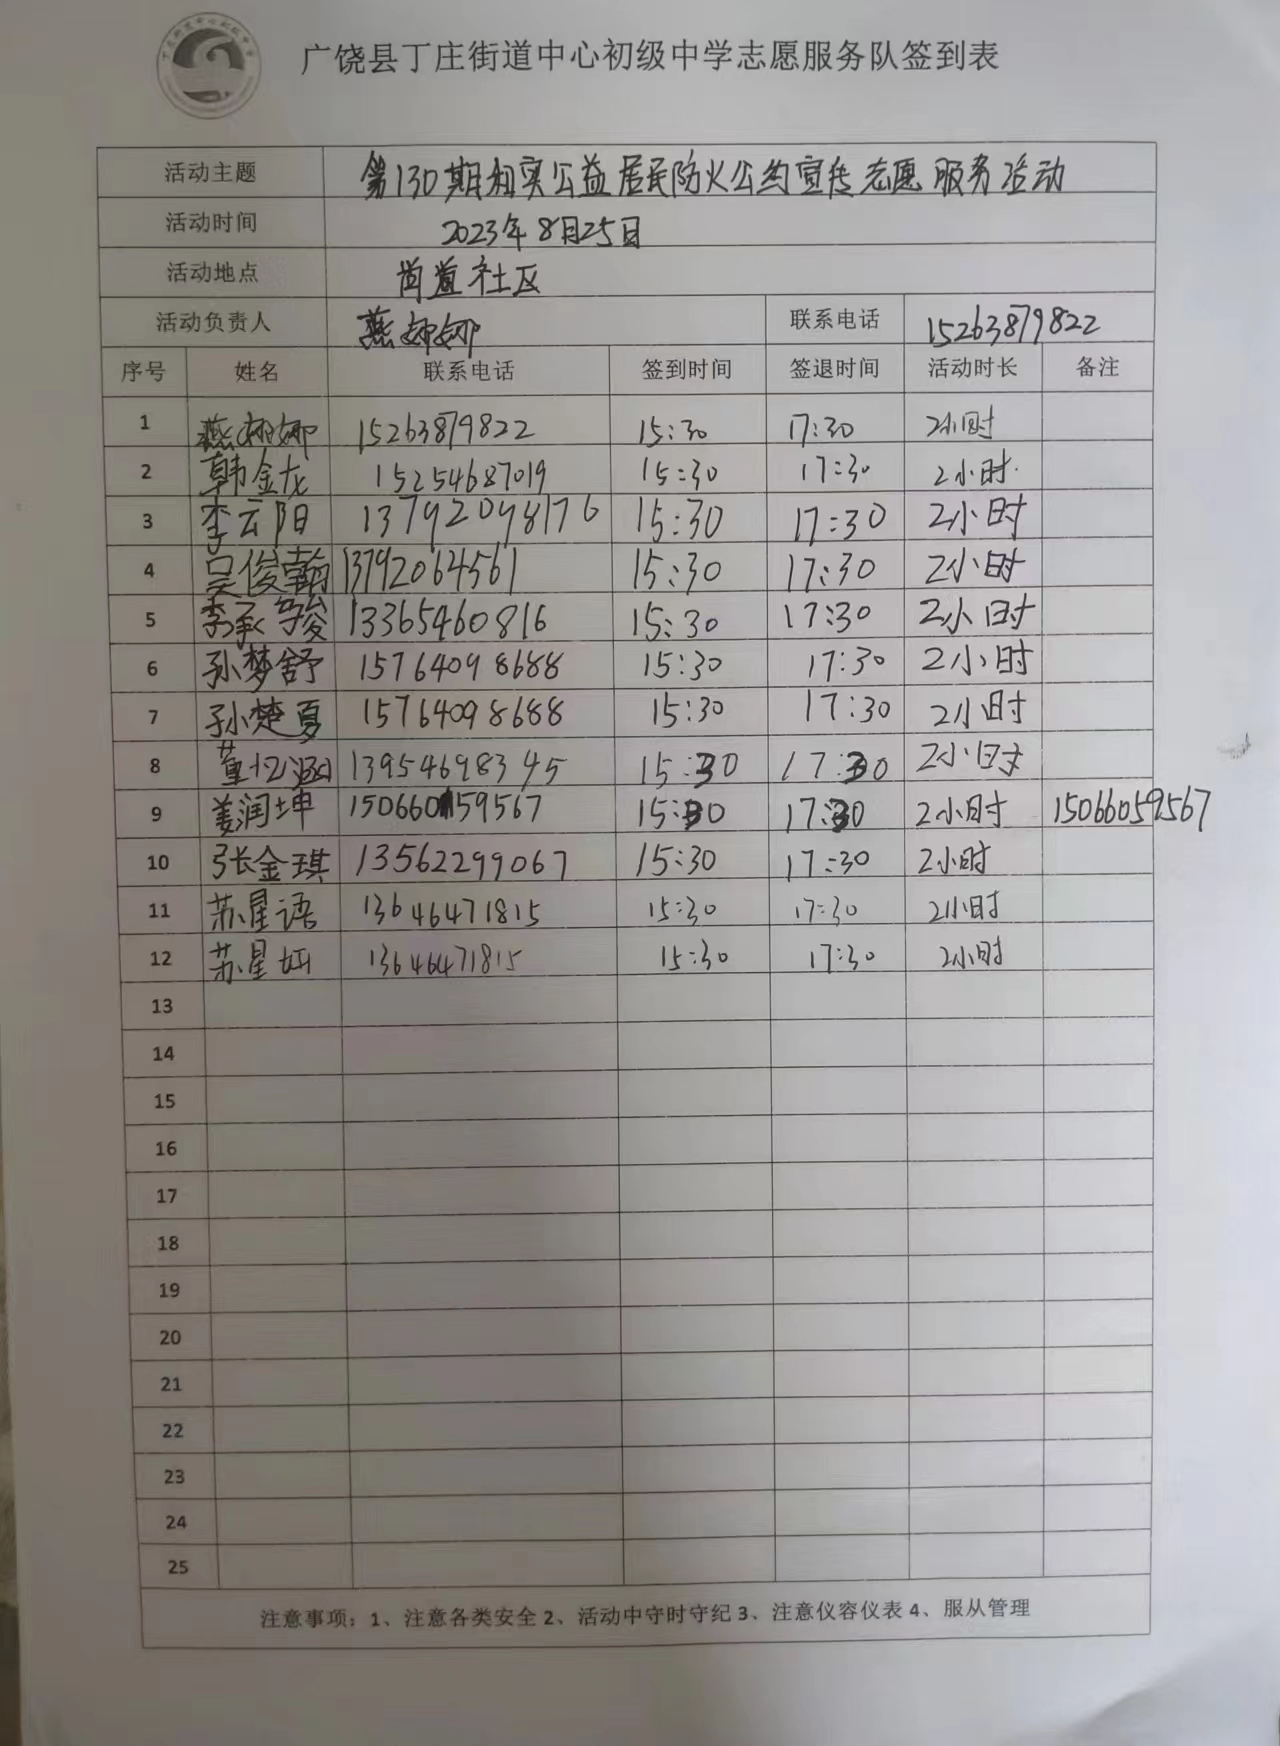 广饶县丁庄街道中心初级中学志愿服务队签到表
活动主题 第130期和实公益居民防火公约宣传志愿服务活动
活动时间 2023年8月25日
活动地点 街道社区
活动负责人 燕娜娜 联系电话 15263879822
序号 姓名 联系电话 签到时间 签退时间 活动时长 备注
1 燕娜娜 15263879822 15:30 17:30 2小时
2 韩金龙 15254687019 15:30 17:30 2小时
3 李云阳 13792098176 15:30 17:30 2小时
4 吴俊翰 13792064561 15:30 17:30 2小时
5 李承骏 13365460816 15:30 17:30 2小时
6 孙梦舒 15764098688 15:30 17:30 2小时
7 孙楚夏 15764098688 15:30 17:30 2小时
8 董忆涵 13954698345 15:30 17:30 2小时
9 姜润坤 15:30 17:30 2小时 15066059567
10 张金琪 13562299067 15:30 17:30 2小时
11 苏星语 13646471815 15:30 17:30 2小时
12 苏星 13646471815 15:30 17:30 2小时
13
14
15
16
17
18
19
20
21
22
23
24
25
注意事项：1、注意各类安全 2、活动中守时守纪 3、注意仪容仪表 4、服从管理